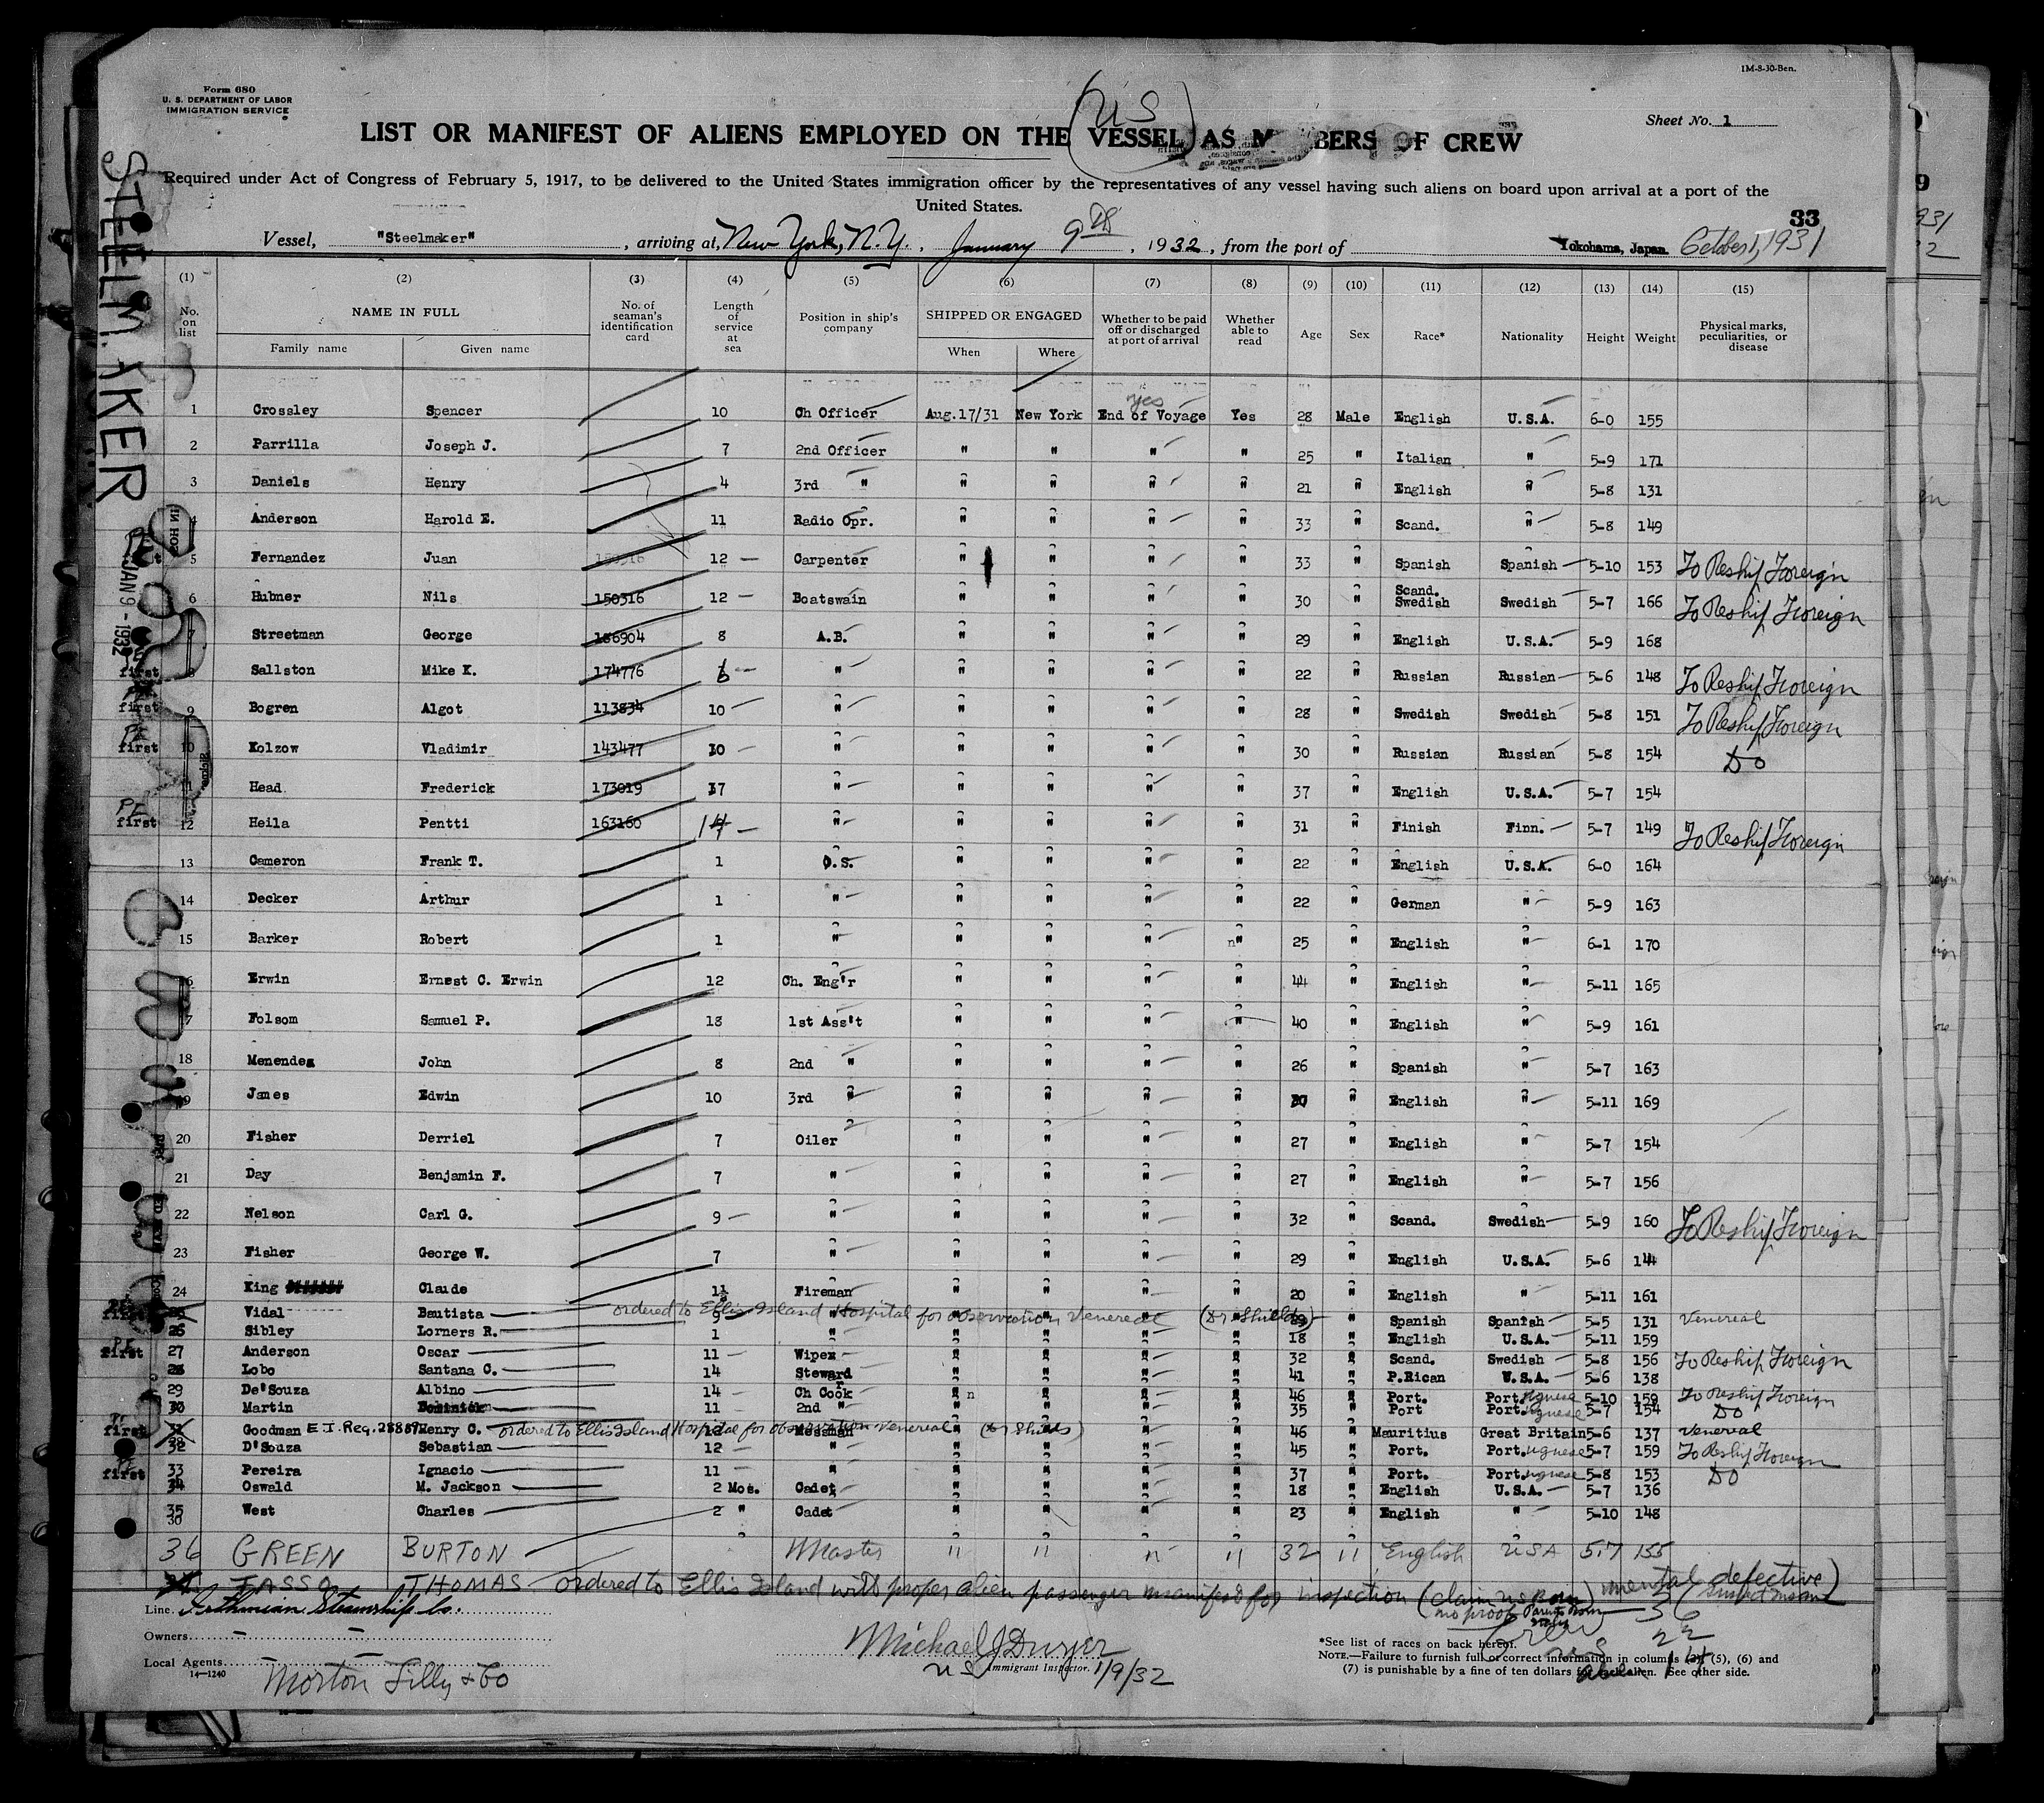 1M-8-30-Ben.
Form 680
U. S. DEPARTMENT OF LABOR
IMMIGRATION SERVICE
Sheet No. 1
(US)
LIST OR MANIFEST OF ALIENS EMPLOYED ON THE VESSEL AS MEMBERS OF CREW
Required under Act of Congress of February 5, 1917, to be delivered to the United States immigration officer by the representatives of any vessel having such aliens on board upon arrival at a port of the
United States.
33
Vessel, "Steelmaker", arriving at, New York, N.Y., January 9th, 1932, from the port of Yokohama, Japan October 1, 1931
STEELMAKER
JAN 9 - 1932
(1) (2) (3) (4) (5) (6) (7) (8) (9) (10) (11) (12) (13) (14) (15)
No. on list NAME IN FULL No. of seaman's identification card Length of service at sea Position in ship's company SHIPPED OR ENGAGED Whether to be paid off or discharged at port of arrival Whether able to read Age Sex Race* Nationality Height Weight Physical marks, peculiarities, or disease
Family name Given name When Where
yes
1 Crossley Spencer 10 Ch Officer Aug.17/31 New York End of Voyage Yes 28 Male English U.S.A. 6-0 155
2 Parrilla Joseph J. 7 2nd Officer " " " " 25 " Italian " 5-9 171
3 Daniels Henry 4 3rd " " " " " 21 " English " 5-8 131
4 Anderson Harold E. 11 Radio Opr. " " " " 33 " Scand. " 5-8 149
5 Fernandez Juan 12 Carpenter " " " " 33 " Spanish Spanish 5-10 153 To Reship Foreign
6 Hubner Nils 150316 12 Boatswain " " " " 30 " Scand. Swedish Swedish 5-7 166 To Reship Foreign
7 Streetman George 186904 8 A.B. " " " " 29 " English U.S.A. 5-9 168
first 8 Sallston Mike K. 174776 6 " " " " " 22 " Russian Russian 5-6 148 To Reship Foreign
first 9 Bogren Algot 113834 10 " " " " " 28 " Swedish Swedish 5-8 151 To Reship Foreign
PE first 10 Kolzow Vladimir 143477 10 " " " " " 30 " Russian Russian 5-8 154 Do
11 Head Frederick 173019 17 " " " " " 37 " English U.S.A. 5-7 154
PE first 12 Heila Pentti 163160 14 " " " " " 31 " Finish Finn. 5-7 149 To Reship Foreign
13 Cameron Frank T. 1 O.S. " " " " 22 " English U.S.A. 6-0 164
14 Decker Arthur 1 " " " " " 22 " German " 5-9 163
15 Barker Robert 1 " " " " n" 25 " English " 6-1 170
16 Erwin Ernest C. Erwin 12 Ch. Eng'r " " " " 44 " English " 5-11 165
17 Folsom Samuel P. 18 1st Ass't " " " " 40 " English " 5-9 161
18 Menendez John 8 2nd " " " " " 26 " Spanish " 5-7 163
19 James Edwin 10 3rd " " " " " 30 " English " 5-11 169
20 Fisher Derriel 7 Oiler " " " " 27 " English " 5-7 154
21 Day Benjamin F. 7 " " " " " 27 " English " 5-7 156
22 Nelson Carl G. 9 " " " " " 32 " Scand. Swedish 5-9 160 To Reship Foreign
23 Fisher George W. 7 " " " " " 29 " English U.S.A. 5-6 144
24 King Claude 1½ Fireman " " " " 20 " English " 5-11 161
first 25 Vidal Bautista 9 " ordered to Ellis Island Hospital for observation Venereal (Dr Shields) " Spanish Spanish 5-5 131 Venereal
26 Sibley Lorners R. 1 " " " " " 18 " English U.S.A. 5-11 159
PE first 27 Anderson Oscar 11 Wiper " " " " 32 " Scand. Swedish 5-8 156 To Reship Foreign
28 Lobo Santana C. 14 Steward " " " " 41 " P.Rican U.S.A. 5-6 138
29 De'Souza Albino 14 Ch Cook " n " " " 46 " Port. Portuguese 5-10 159 To Reship Foreign
30 Martin Dominick 11 2nd " " " " " 35 " Port Portuguese 5-7 154 Do
first 31 Goodman E.I. Reg. 28889 Henry C. ordered to Ellis Island Hospital for observation Venereal (Dr Shields) Messman " " 46 " Mauritius Great Britain 5-6 137 Venereal
32 D'Souza Sebastian 12 " " " " " 45 " Port. Portuguese 5-7 159 To Reship Foreign
first 33 Pereira Ignacio 11 " " " " " 37 " Port. Portuguese 5-8 153 Do
34 Oswald M. Jackson 2 Mos. Cadet " " " " 18 " English U.S.A. 5-7 136
35 West Charles 2 " Cadet " " " " 23 " English " 5-10 148
30
36 GREEN BURTON Master " " " " 32 " English USA 5.7 155
TASSO THOMAS ordered to Ellis Island with proper alien passenger manifest for inspection (claim US Born no proof Parents Born Italy) mental defective)
Line Isthmian Steamship Co.
Owners
Local Agents Morton Lilly & Co
14—1240
Michael J Dwyer
US Immigrant Inspector. 1/9/32
*See list of races on back hereof.
NOTE.—Failure to furnish full or correct information in columns (2), (5), (6) and
(7) is punishable by a fine of ten dollars for each alien. See other side.
Crew 36
US 22
Alien 14